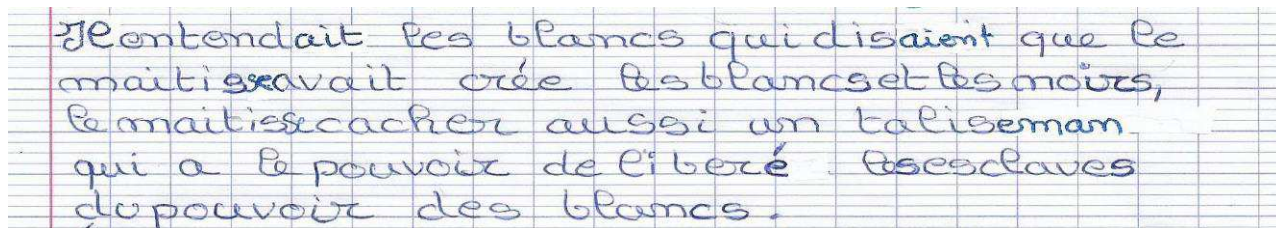 Il entendait les blancs qui disaient que le
maitisse avait crée les blancs et les noirs,
le maitisse cacher aussi un taliseman
qui a le pouvoir de liberé les esclaves
du pouvoir des blancs.